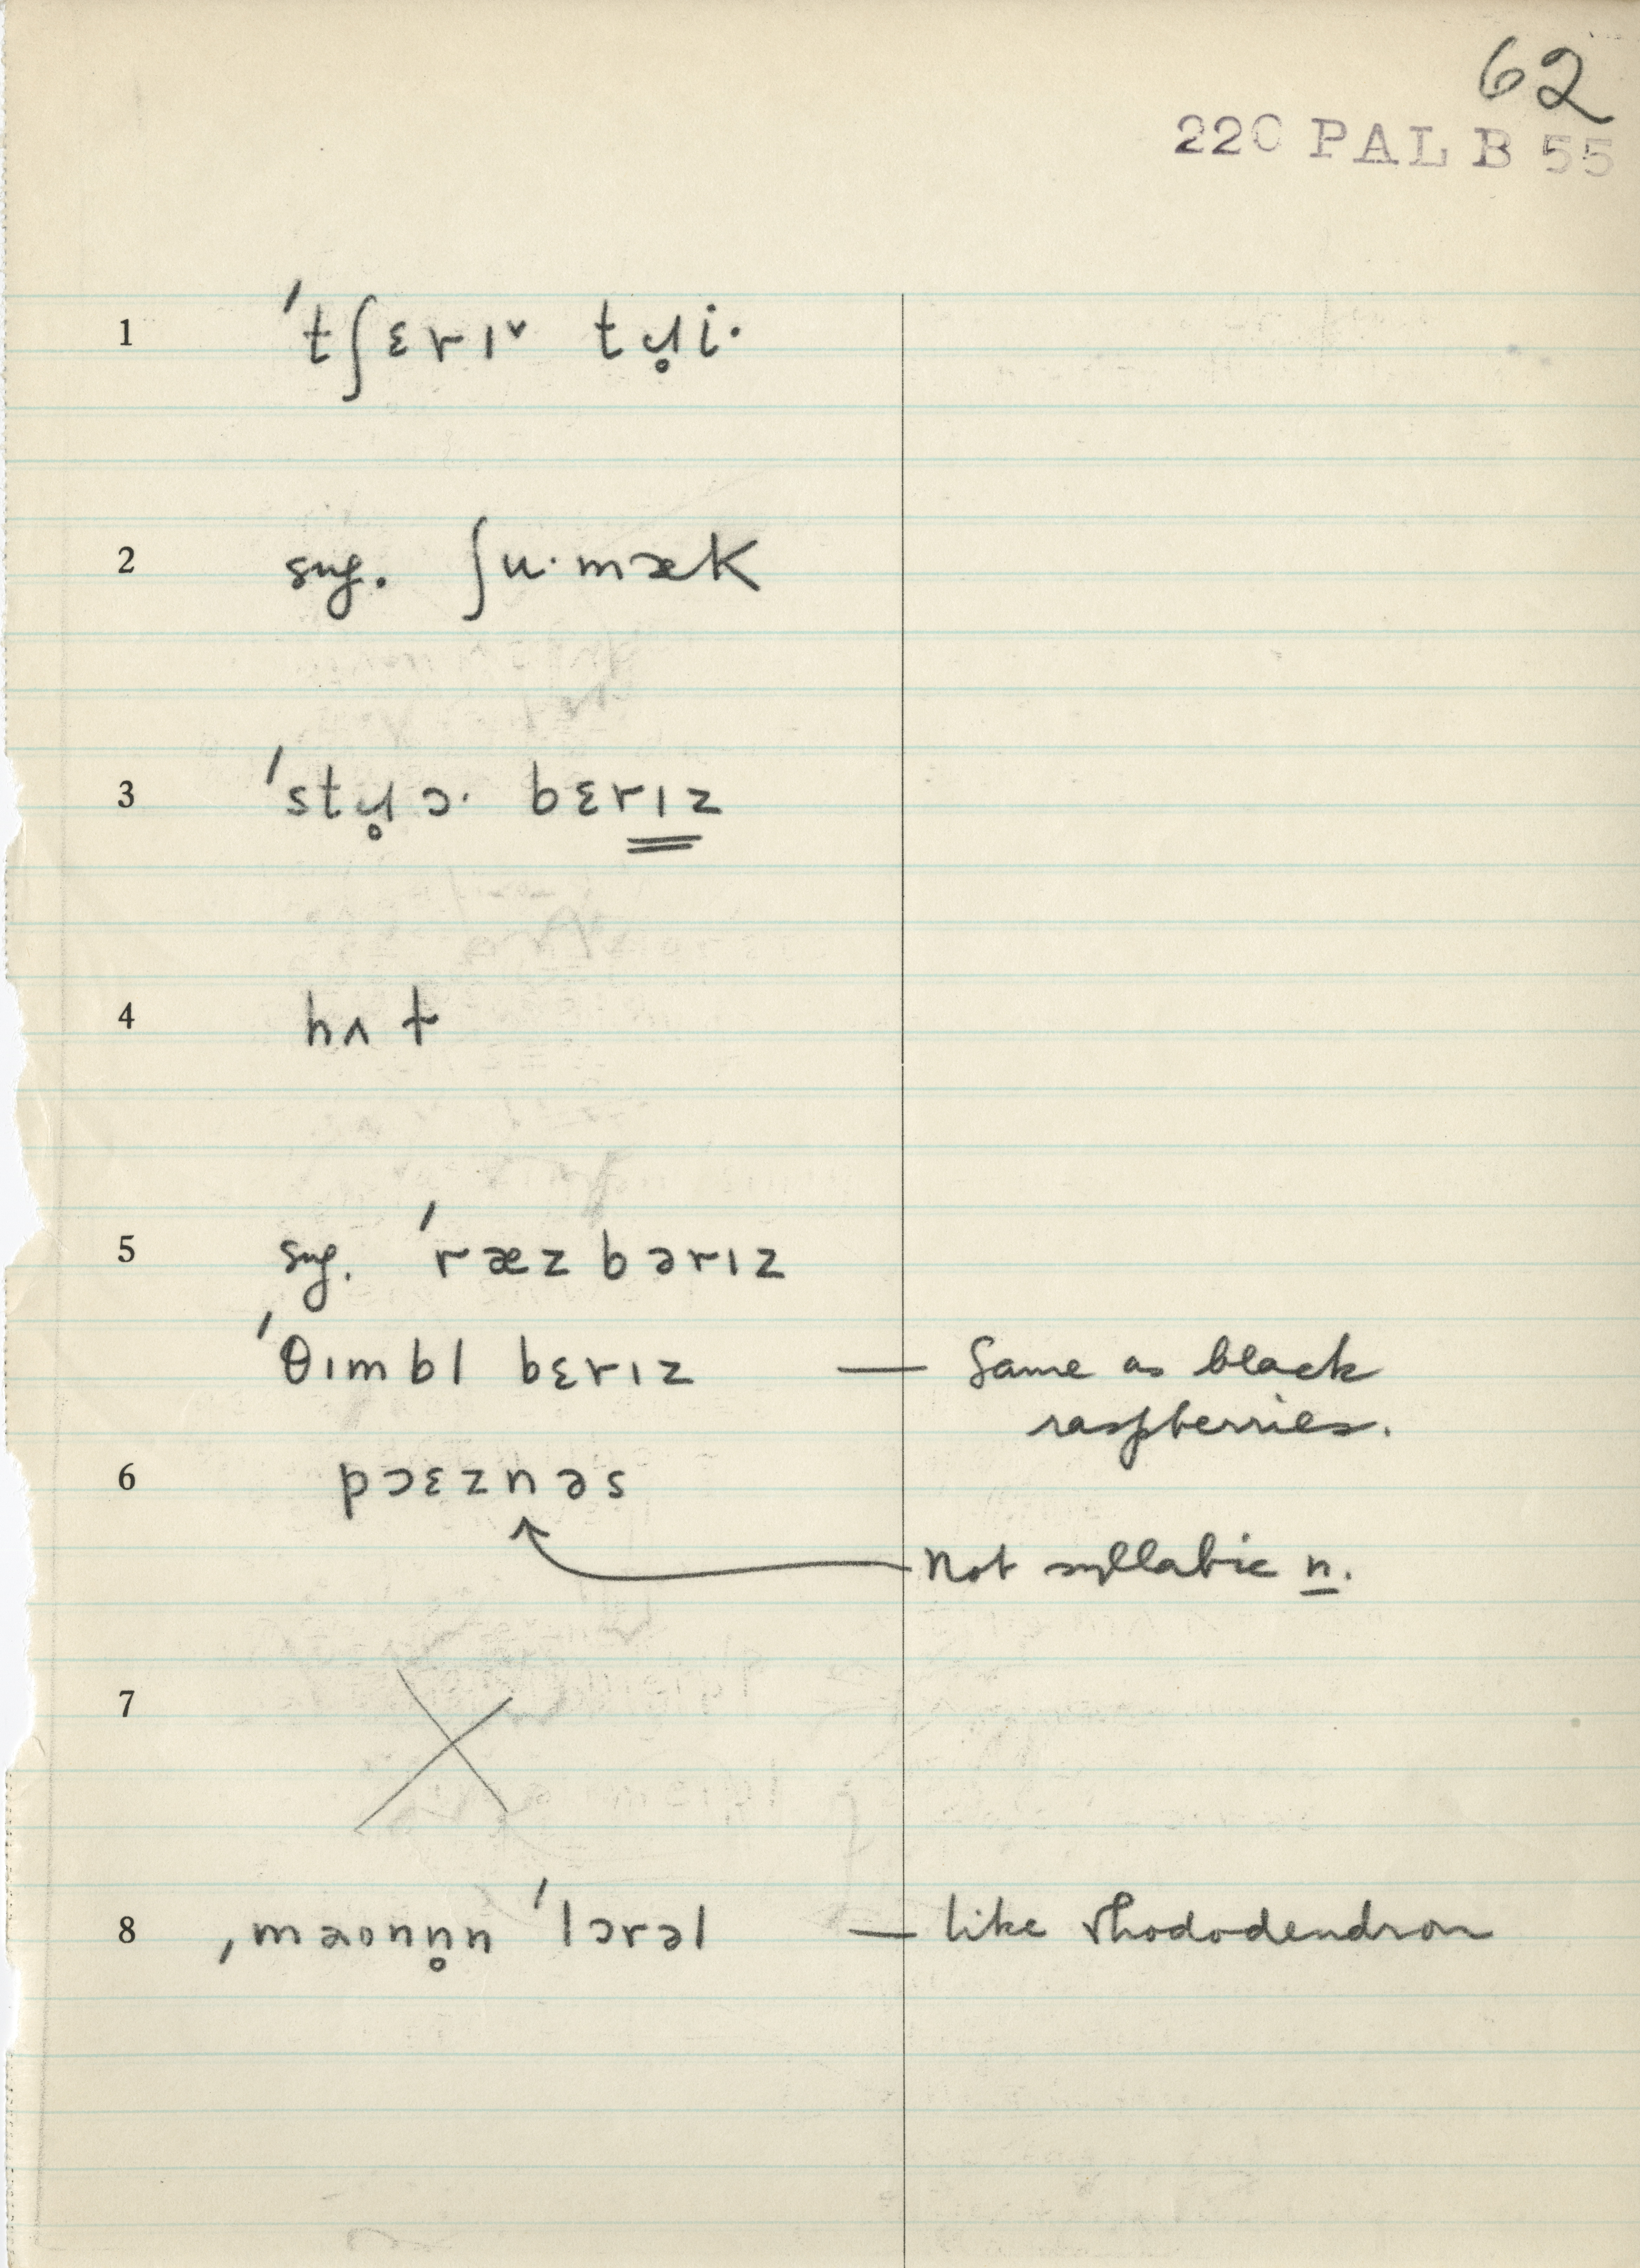 62
220 PAL B 55
1 ˈtʃɛrɪ˅ tɹ̥i·
2 sug. ʃu·mæk
3 ˈstɹ̥ɔ· bɛrɪz
4 hʌt
5 sug. ˈræzbərɪz
ˈθɪmbl bɛrɪz — Same as black
raspberries.
6 pɔɛznəs
Not syllabic n.
7
8 ˌmaonn̥n ˈlɔrəl — like rhododendron